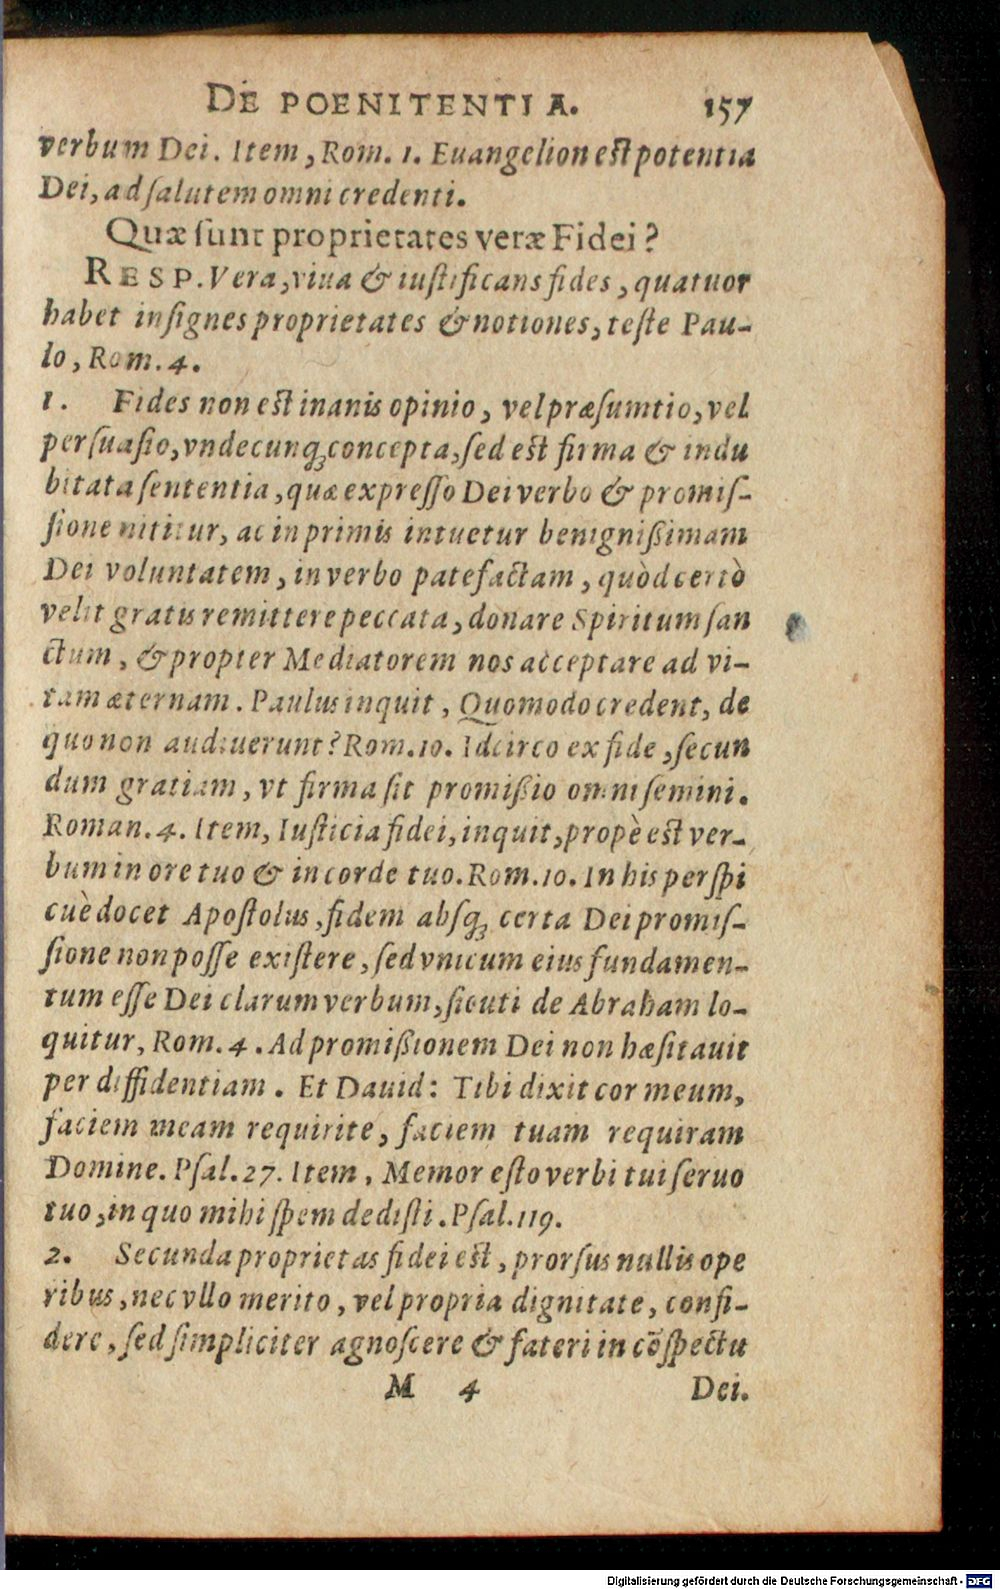 DE POENITENTIA. 157
verbum Dei. Item, Rom. 1. Euangelion est potentia
Dei, ad ſalutem omni credenti.
Quæ ſunt proprietates veræ Fidei?
RESP. Vera, viua & iuſtificans fides, quatuor
habet inſignes proprietates & notiones, teſte Pau-
lo, Rom. 4.
1. Fides non eſt inanis opinio, vel præſumtio, vel
perſuaſio, vndecunq; concepta, ſed eſt firma & indu
bitata ſententia, quæ expreſſo Dei verbo & promiſ-
ſione nititur, ac in primis intuetur benigniſſimam
Dei voluntatem, in verbo patefactam, quòd certò
velit gratis remittere peccata, donare Spiritum ſan
ctum, & propter Mediatorem nos acceptare ad vi-
tam æternam. Paulus inquit, Quomodo credent, de
quo non audiuerunt? Rom. 10. Idcirco ex fide, ſecun
dum gratiam, vt firma ſit promiſſio omni ſemini.
Roman. 4. Item, Iuſticia fidei, inquit, propè eſt ver-
bum in ore tuo & in corde tuo. Rom. 10. In his perſpi
cuè docet Apoſtolus, fidem abſq; certa Dei promiſ-
ſione non poſſe exiſtere, ſed vnicum eius fundamen-
tum eſſe Dei clarum verbum, ſicuti de Abraham lo-
quitur, Rom. 4. Ad promiſſionem Dei non hæſitauit
per diffidentiam. Et Dauid: Tibi dixit cor meum,
faciem meam requirite, faciem tuam requiram
Domine. Pſal. 27. Item, Memor eſto verbi tui ſeruo
tuo, in quo mihi ſpem dediſti. Pſal. 119.
2. Secunda proprietas fidei eſt, prorſus nullis ope
ribus, nec vllo merito, vel propria dignitate, confi-
dere, ſed ſimpliciter agnoſcere & fateri in cōſpectu
M 4 Dei.
Digitalisierung gefördert durch die Deutsche Forschungsgemeinschaft - DFG